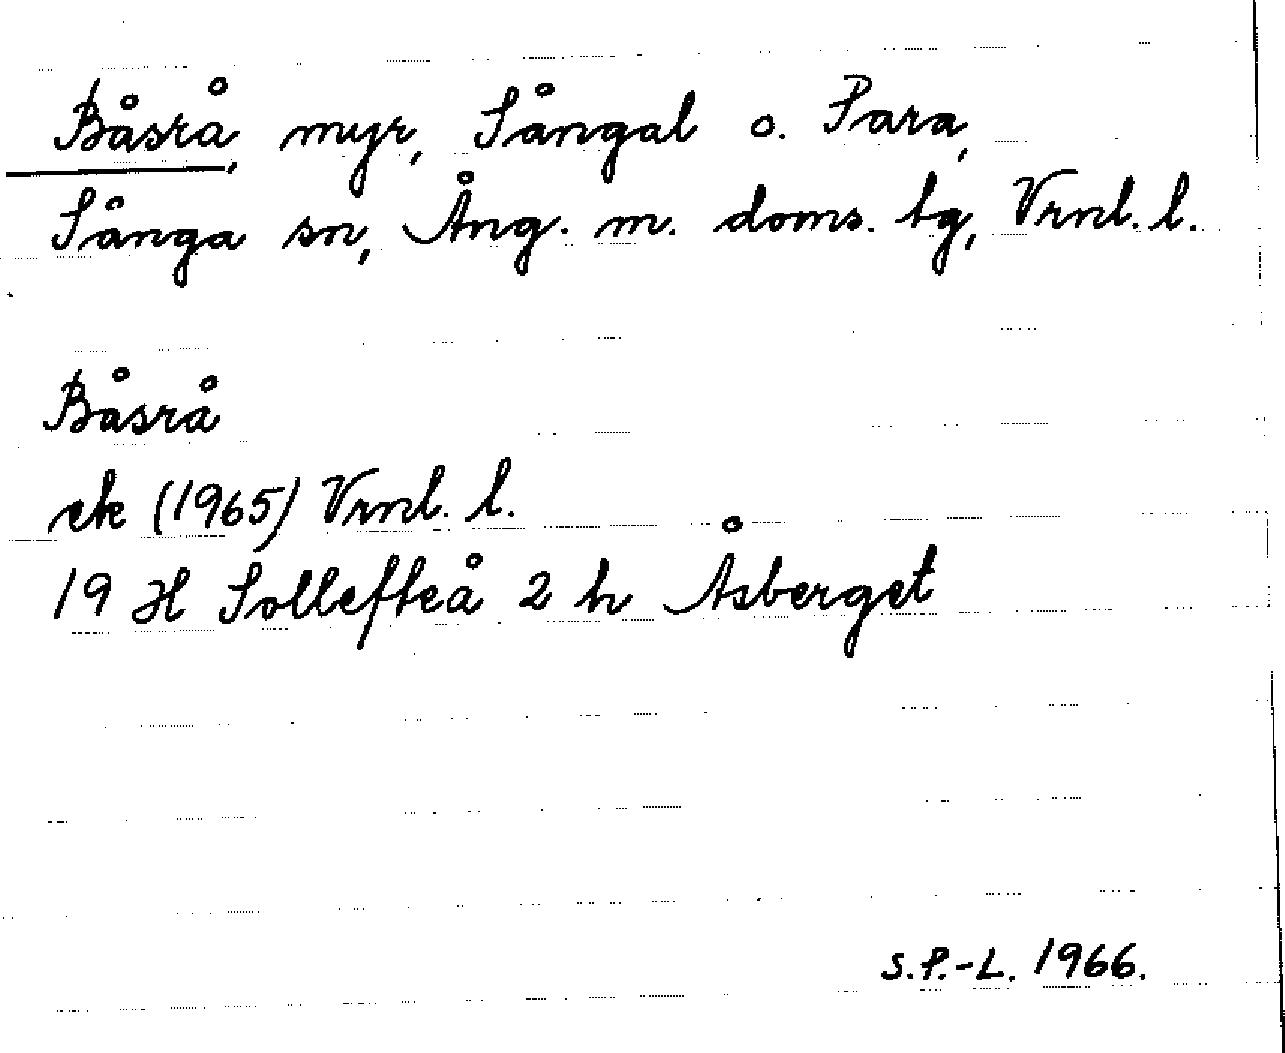 Båsrå, myr, Sångal o. Para,
Sånga sn, Ång. m. doms. bg, Vrml. l.
Båsrå
ek (1965) Vrml. l.
19 H Sollefteå 2 h Åsberget
S.P.-L. 1966.